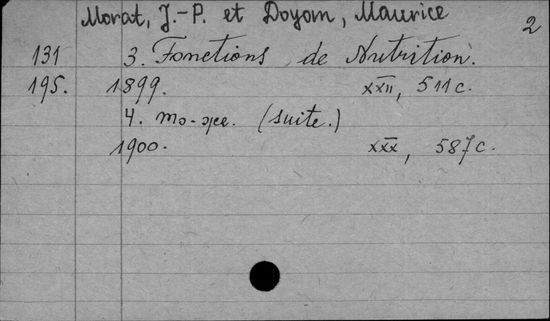 Morat, J.-P. et Doyon, Maurice
2
131 3. Fonctions de Nutrition.
195. 1899. XXII, 511 c.
4. то-же. (suite.)
1900. XXX, 587 c.